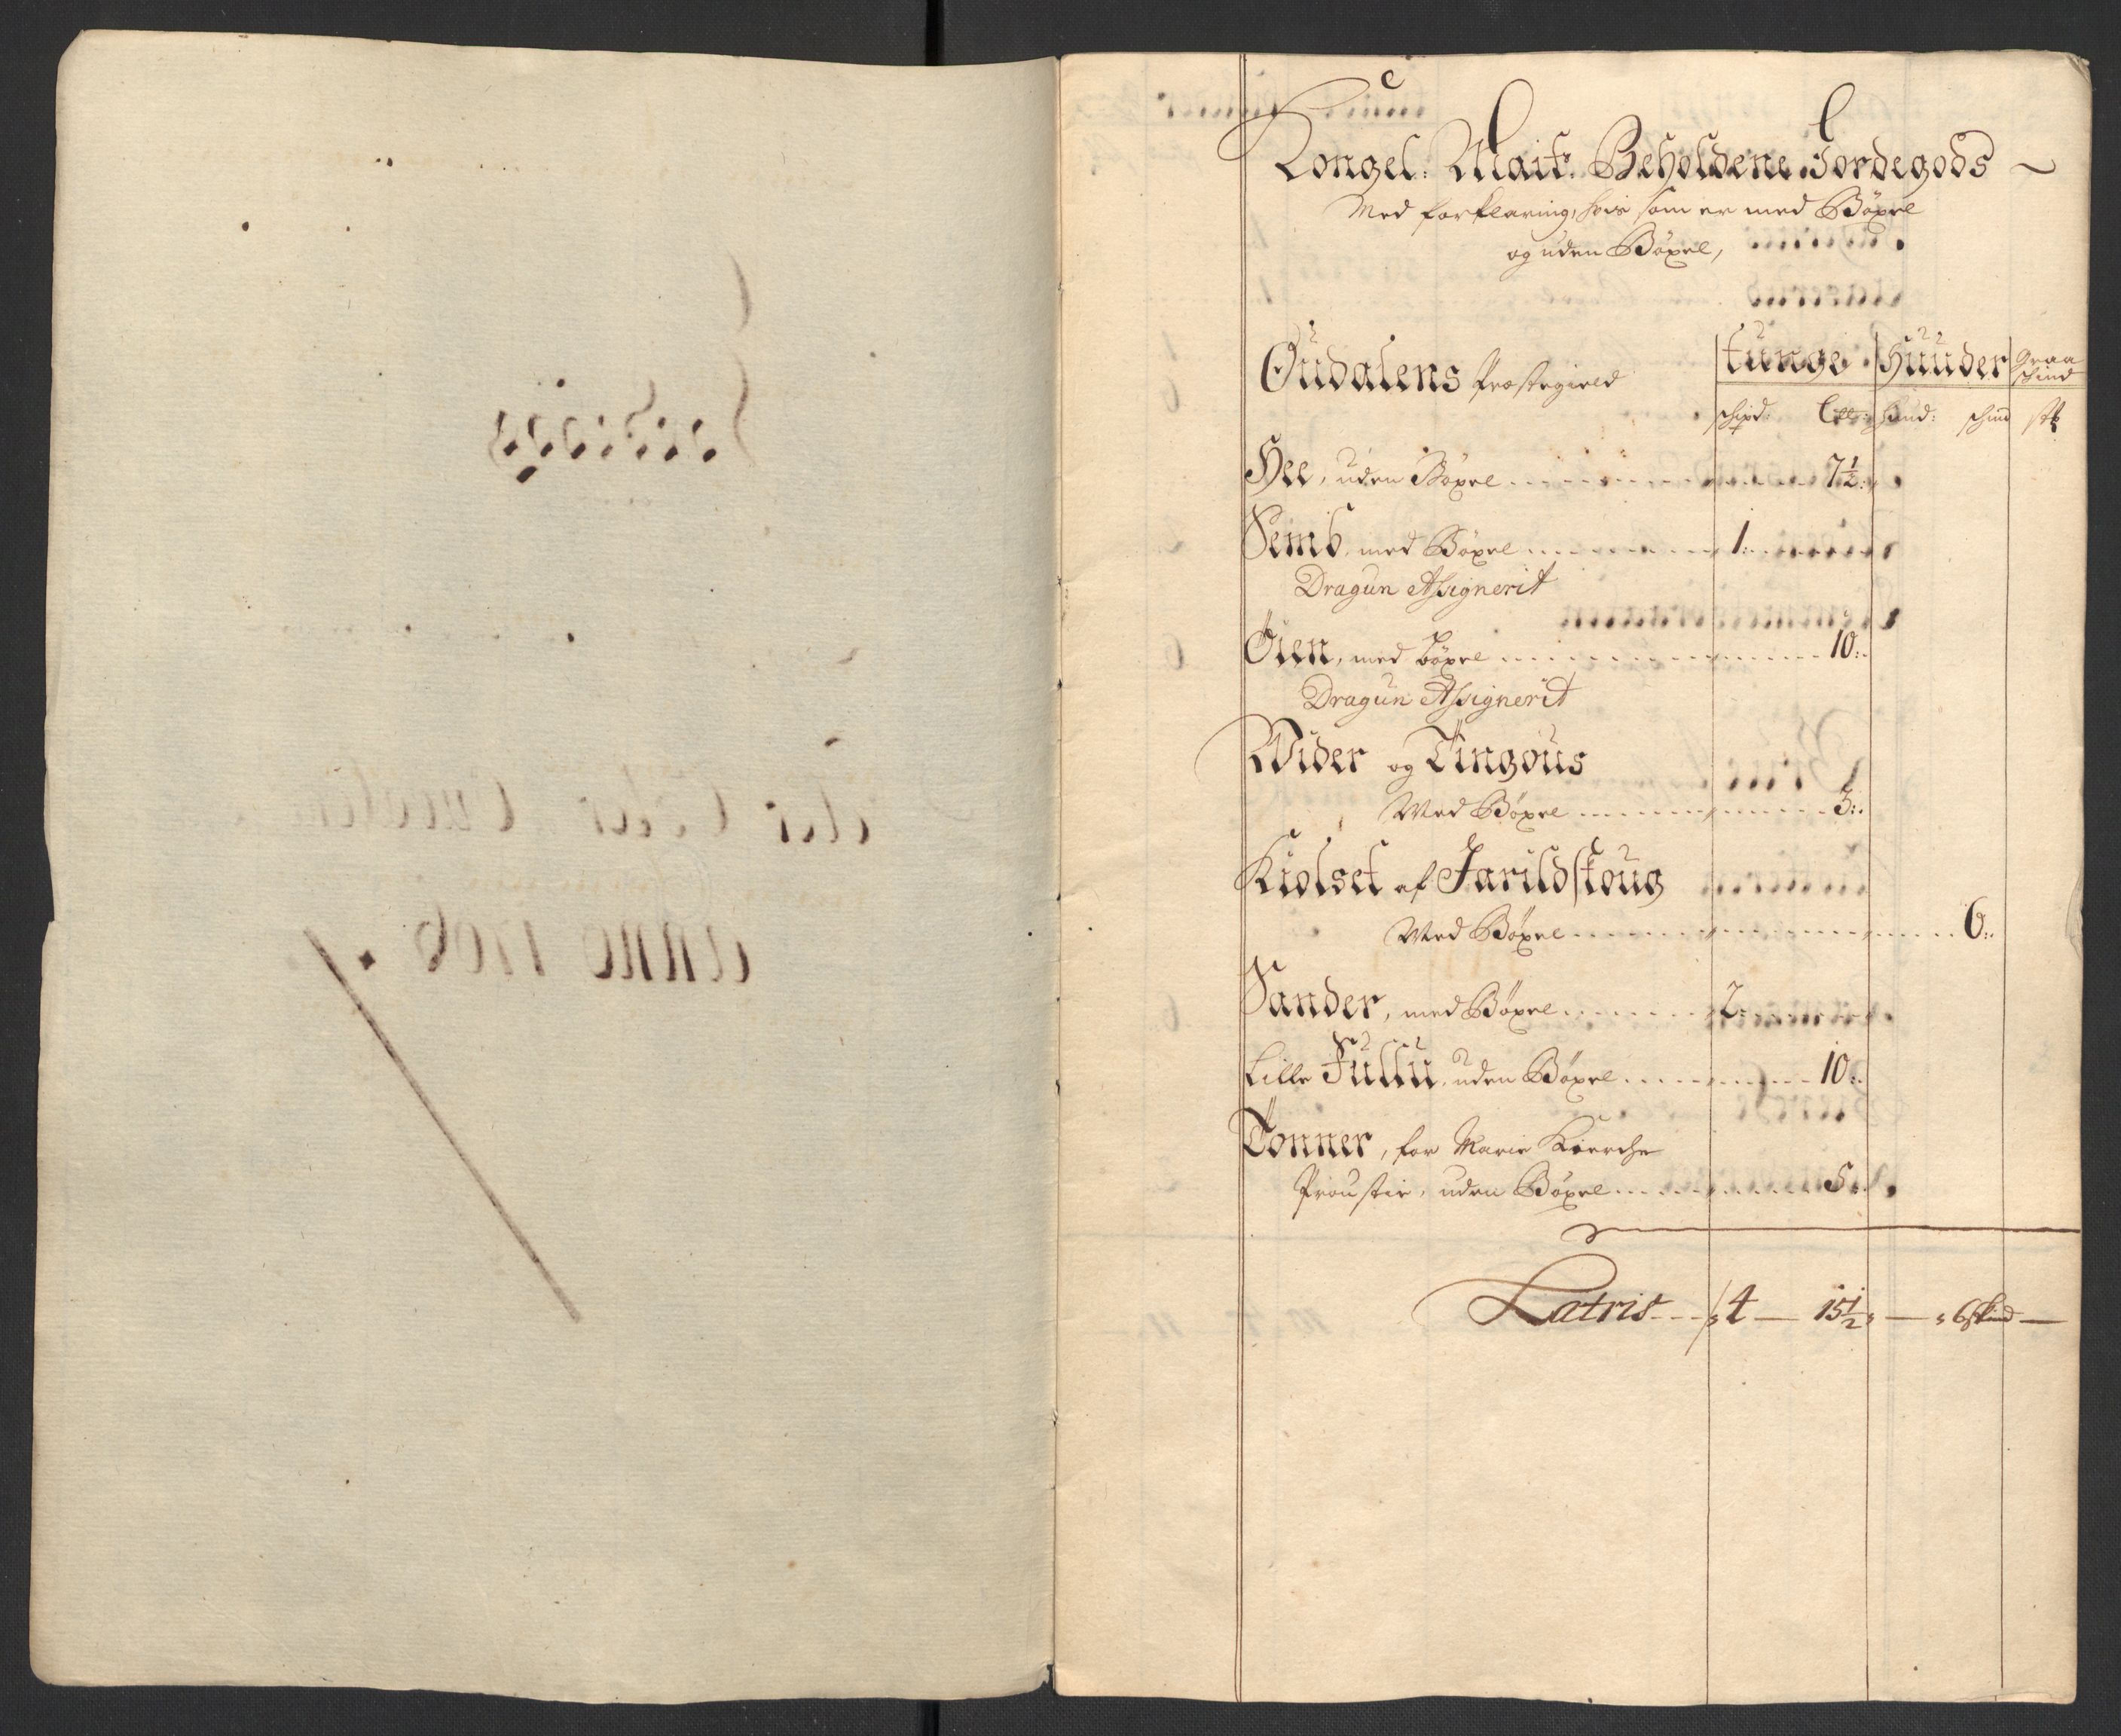 Kongel: Maits: Beholdene Jordegods
Med forklaring, hvis som er med Böxel
og uden Böxel,
Oudalens Præstegield
tunge Huuder Graa skind
schipd: Hud: schind stk
Hee, uden Böxel 7½
Semb, med Böxel 1
Dragun Assignerit
Öien, med Böxel 10
Dragun Assignerit
Wider og Tingous
Med Böxel 3
Kiolset af Jarildskoug
Med Böxel 6
Sander, med Böxel 2
Lille Fullu, uden Böxel 10
Tonner, for Marie Kierche
Proustie, uden Böxel 5
Latris 4 — 15½ — 6 skind —